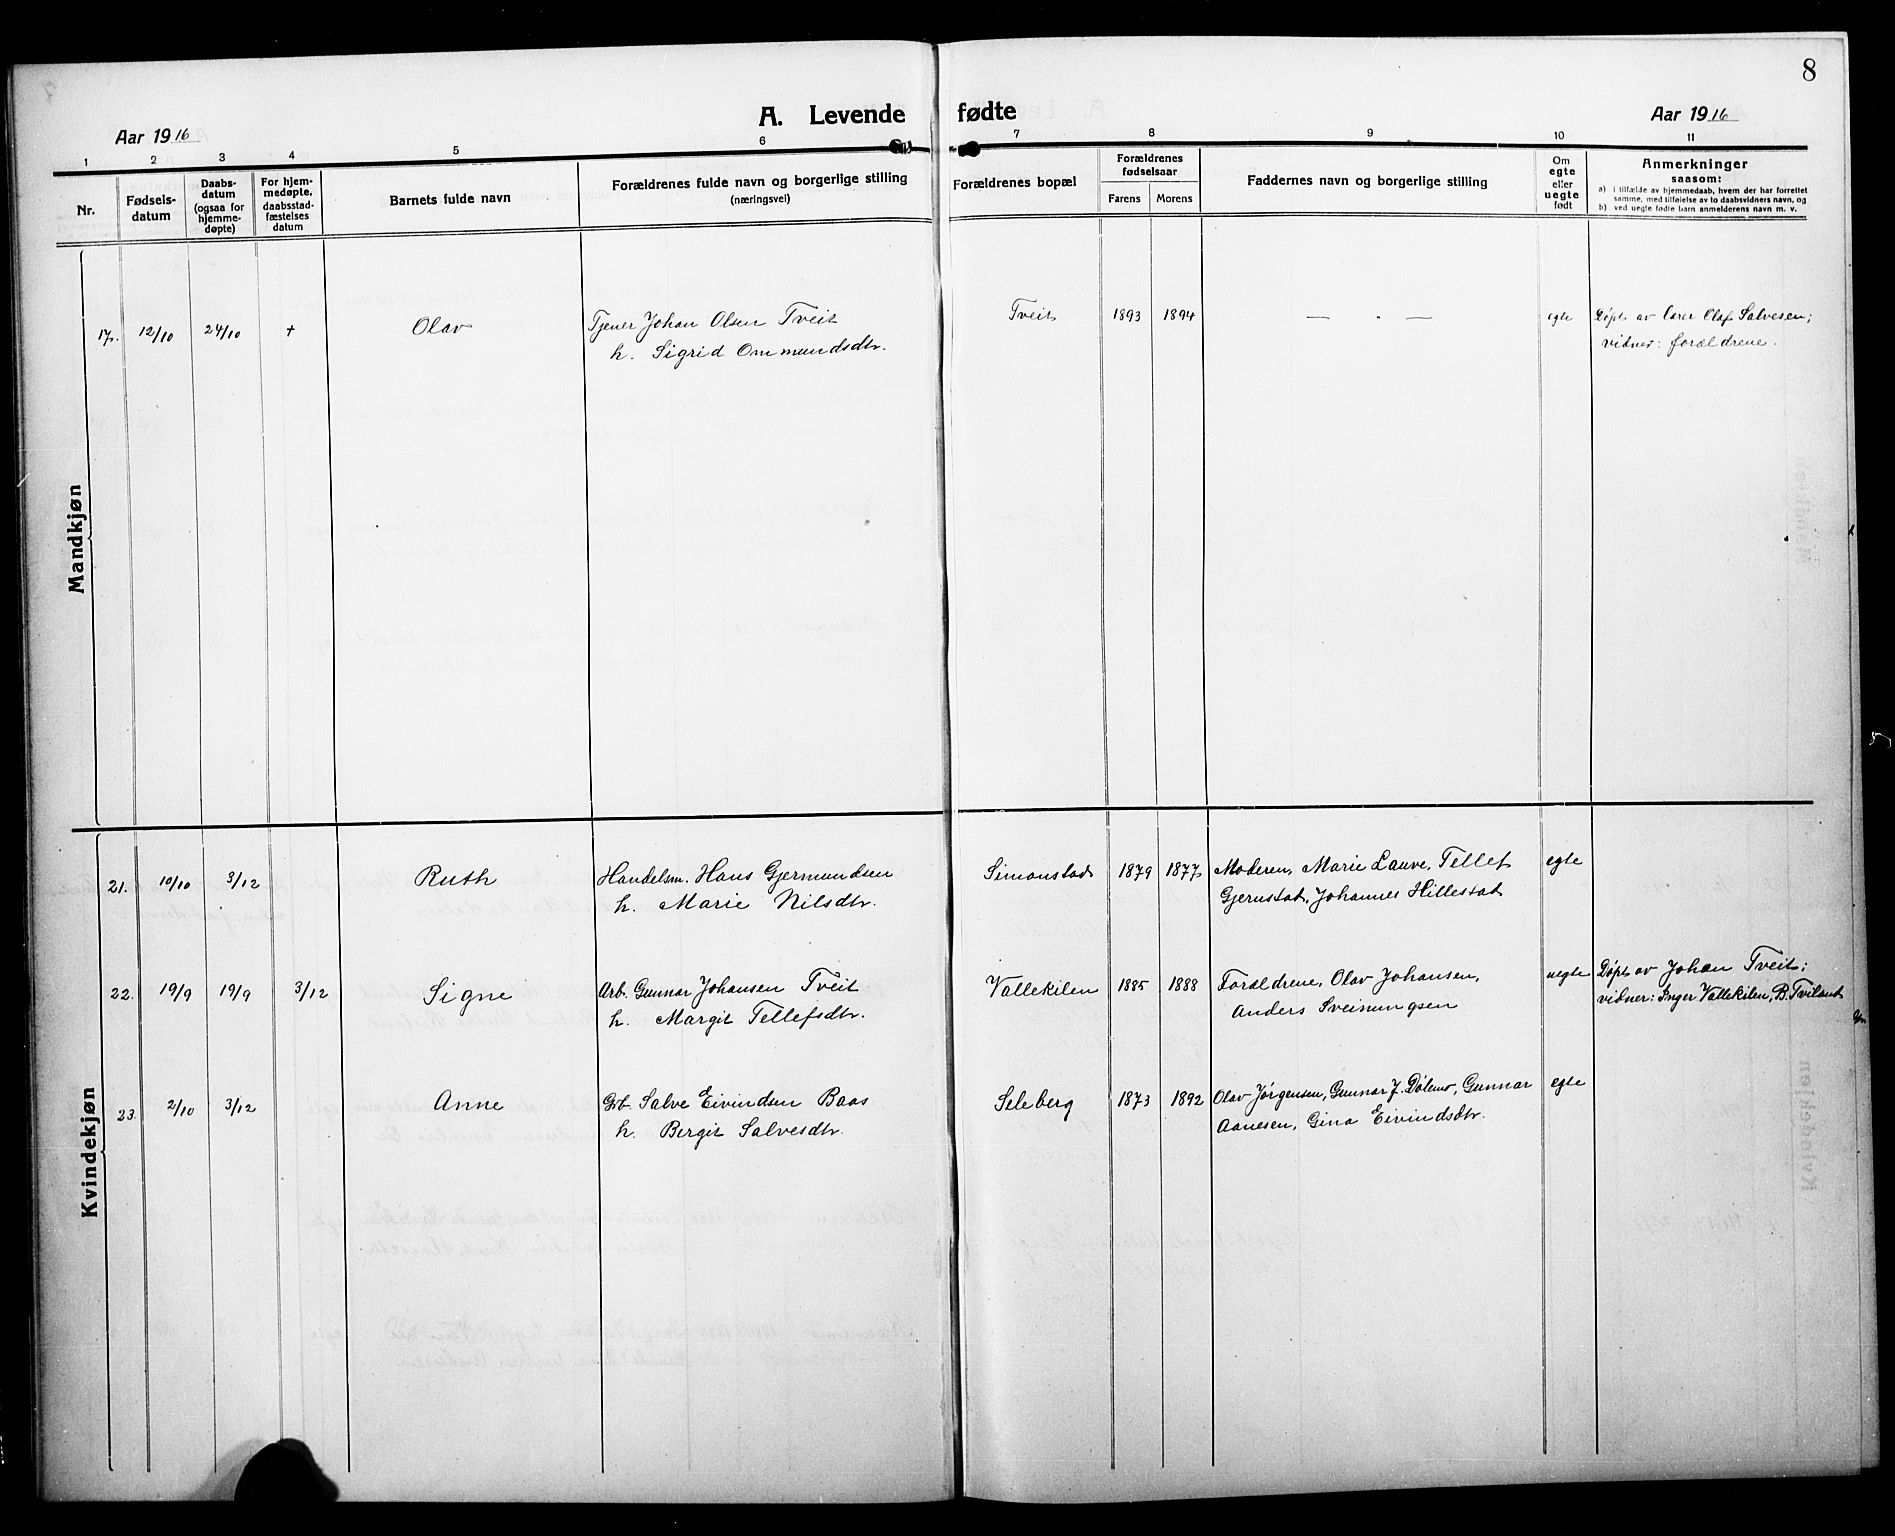 8
A. Levende fødte
Aar 1916
Aar 1916
1 2 3 4 5 6 7 8 9 10 11
Nr.
Fødsels-
datum
Daabs-
datum
(ogsaa for
hjemme-
døpte)
For hjem-
medøpte,
daabsstad-
fæstelses
datum
Barnets fulde navn
Forældrenes fulde navn og borgerlige stilling
(næringsvei)
Forældrenes bopæl
Forældrenes
fødselsaar
Farens Morens
Faddernes navn og borgerlige stilling
Om
egte
eller
uegte
født
Anmerkninger
saasom:
a) i tilfælde av hjemmedaab, hvem der har forrettet
samme, med tilføielse av to daabsvidners navn, og
b) ved uegte fødte barn anmelderens navn m. v.
Mandkjøn
17. 12/10 24/10 + Olav Tjener Johan Olsen Tveit Tveit 1893 1894 — . — egte Døpt av lærer Olaf Salvesen;
h. Sigrid Ommundsdtr. vidner: forældrene.
Kvindekjøn
21. 10/10 3/12 Ruth Handelsm. Hans Gjermundsen Simonstad 1879 1877 Moderen, Marie Lauve, Tellef egte
h. Marie Nilsdtr. Gjerustad, Johannes Hillestad
22. 19/9 19/9 3/12 Signe Arb. Gunnar Johansen Tveit Vallekilen 1885 1888 Forældrene, Olav Johansen, uegte Døpt av Johan Tveit;
h. Margit Tellefsdtr. Anders Sveinungsen vidner: Inger Vallekilen, B. Tviland
23. 2/10 3/12 Anne Grb. Salve Eivindsen Baas Seleberg 1873 1892 Olav Jørgensen, Gunnar J. Dølemo, Gunnar egte
h. Bergit Salvesdtr. Aanesen, Gina Eivindsdtr.